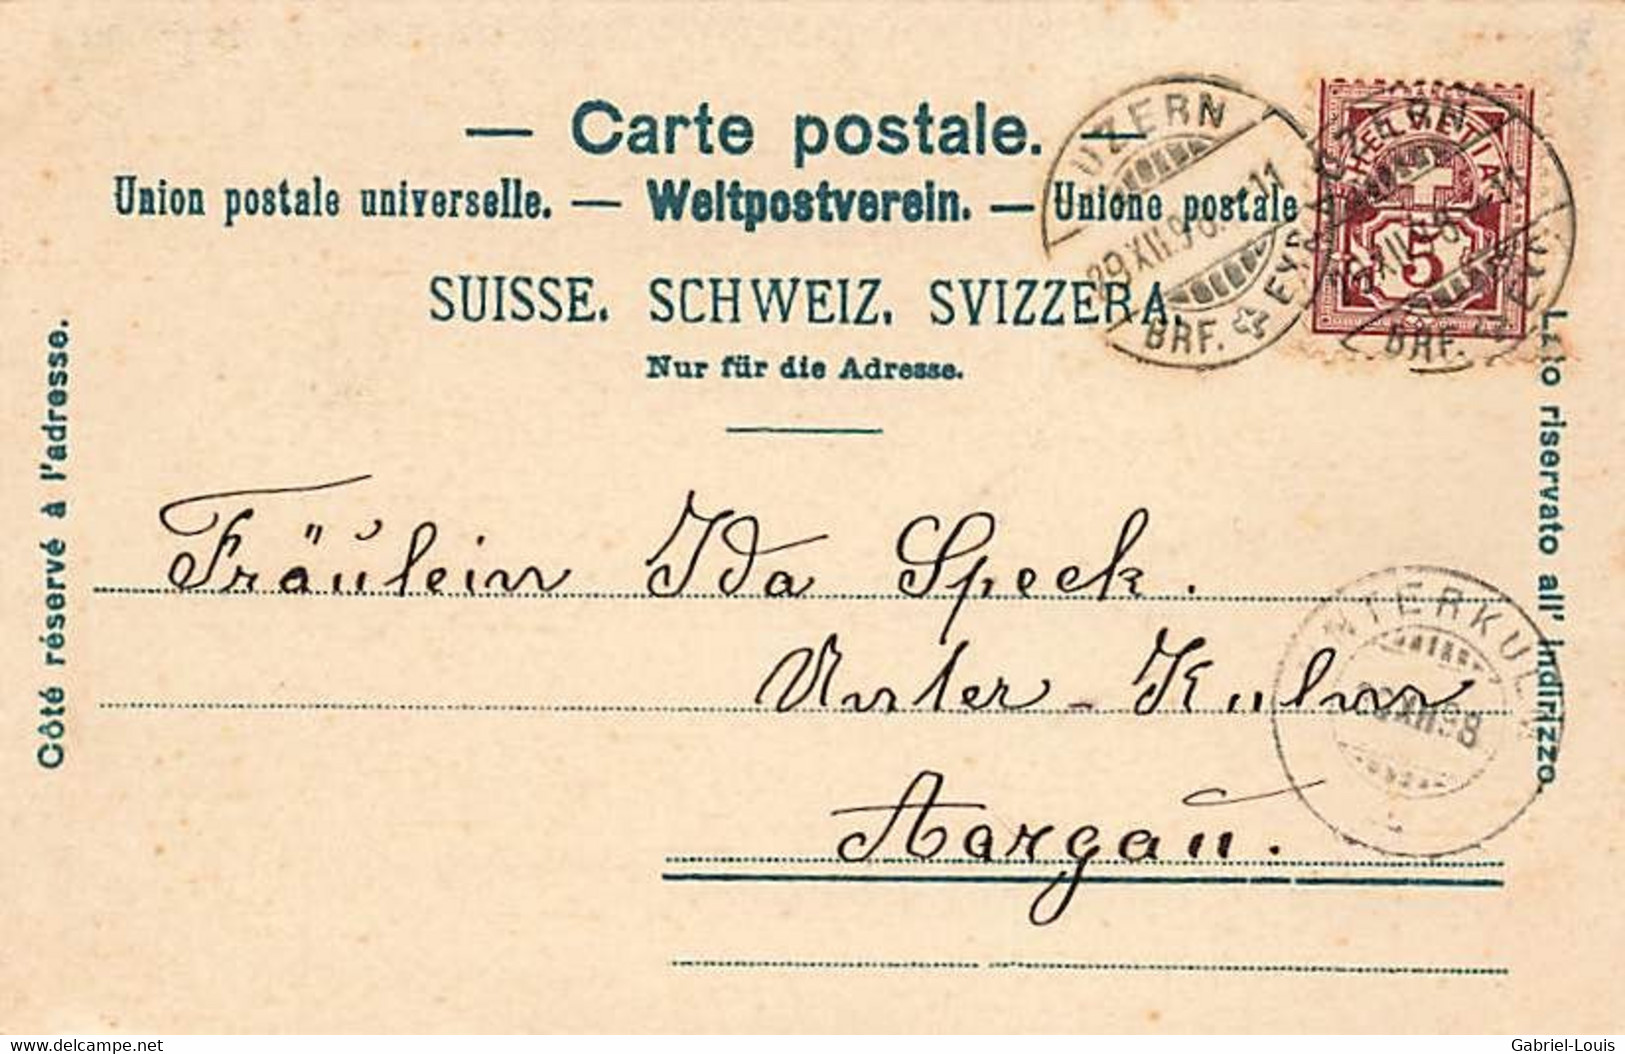 — Carte postale. —
Union postale universelle. — Weltpostverein. — Unione postale
SUISSE. SCHWEIZ. SVIZZERA.
Nur für die Adresse.
Côté réservé à l'adresse.
Lato riservato all' indirizzo.
HELVETIA
5
LUZERN
29 XII 98. 11
BRF. EXP.
LUZERN
XII 98 11
BRF. EXP.
Fräulein Ida Speck.
Unter-Kulm
Aargau.
UNTERKULM
XII 98
delcampe.net
Gabriel-Louis